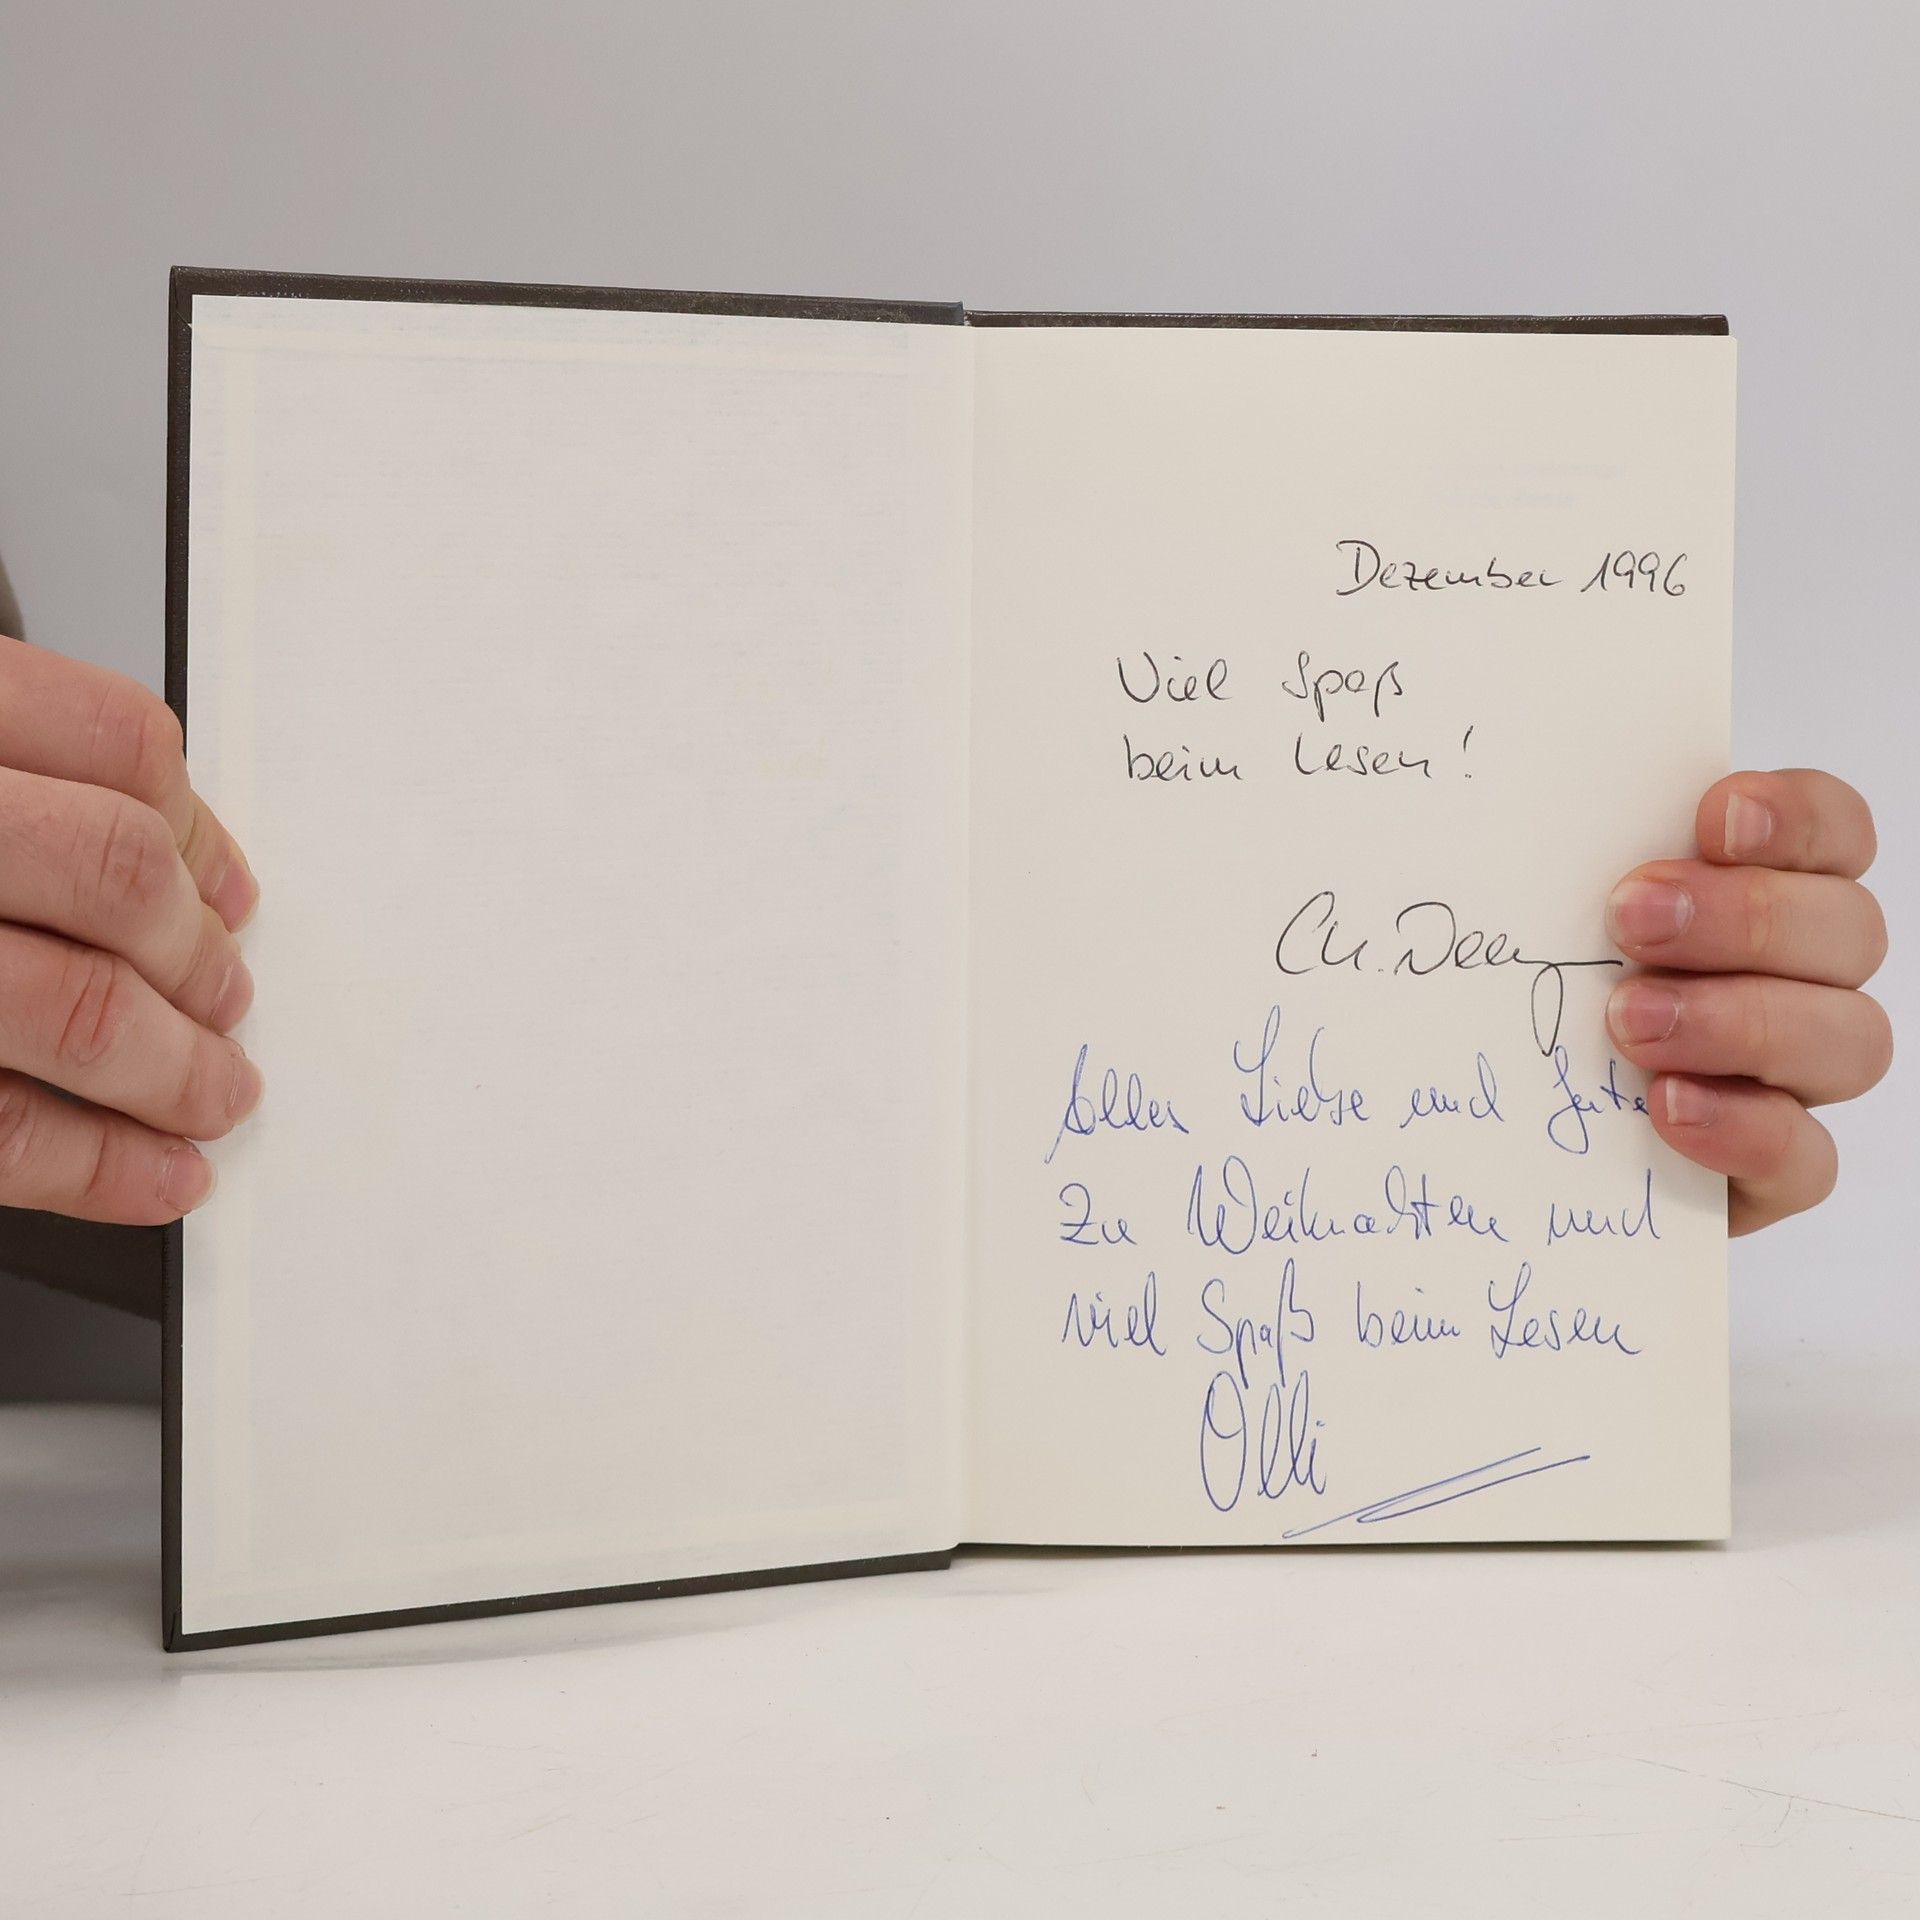 Dezember 1996
Viel Spaß
beim Lesen!
Ch.
Alles Liebe und Gute
zu Weihnachten und
viel Spaß beim Lesen
Olli